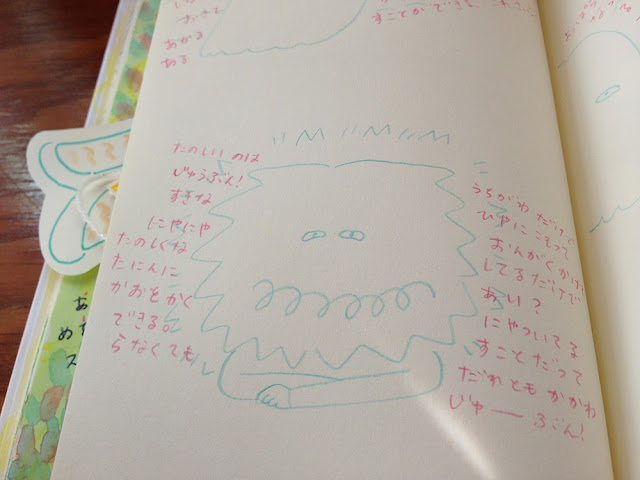 あがる
ある
すことができ
たのしいのは
じゅうぶん!
すきな
にやにや
たのしくね
たにんに
かおをかく
できる。
らなくても
うちがわ だけで
ひやにこもって
おんがくかけ
してるだけで
あい?
にやついてる
すことだって
だれともかかわ
じゅーぶん!
お
め